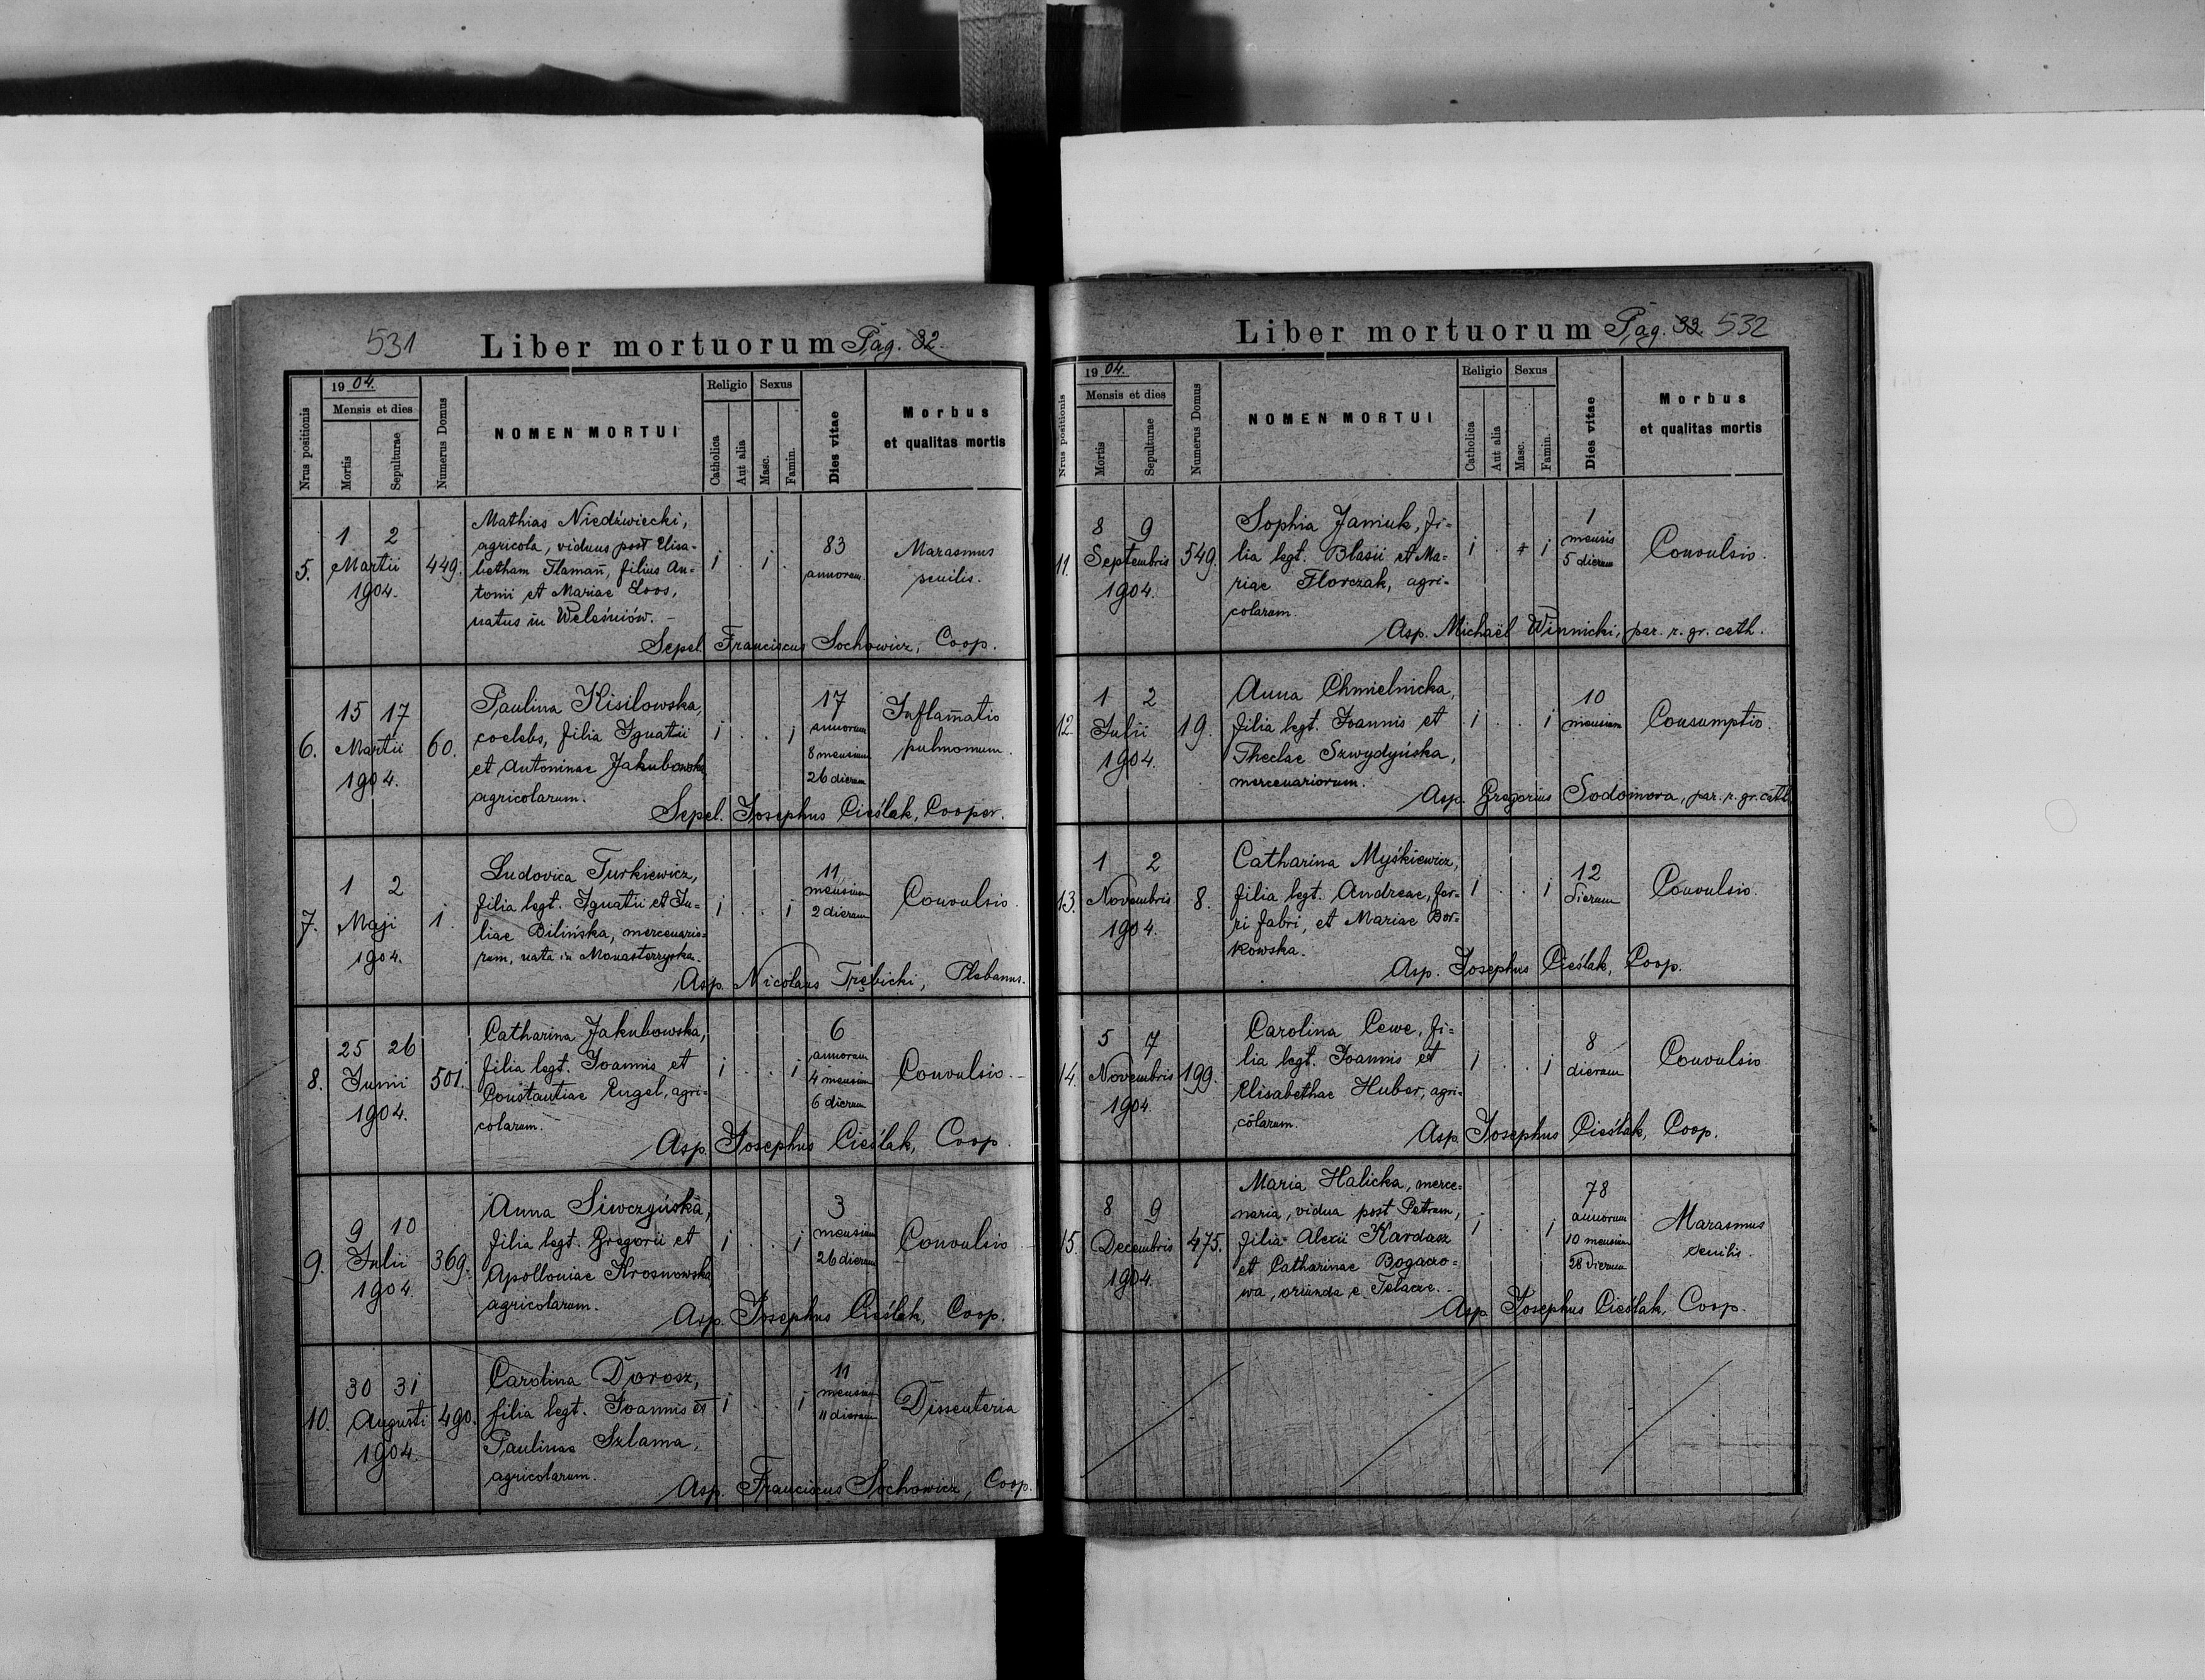 531 Liber mortuorum Pag. 32.
Nrus positionis
1904.
Mensis et dies
Mortis
Sepulturae
Numerus Domus
NOMEN MORTUI
Religio
Catholica
Aut alia
Sexus
Masc.
Famin.
Dies vitae
Morbus
et qualitas mortis
5.
1 2
Martii
1904.
449.
Mathias Niedźwiecki,
agricola, viduus post Elisa-
betham Flamañ, filius An-
tonii et Mariae Loos,
natus in Weleśniów. -
1 . 1 .
83
annorum.
Marasmus
senilis.
Sepel. Franciscus Sochowicz, Coop.
6.
15 17
Martii
1904.
60.
Paulina Kisilowska,
coelebs, filia Ignatii
et Antoninae Jakubowska
agricolarum.
1 . . 1
17
annorum
8 mensium
26 dierum
Inflam̄atio
pulmonum.
Sepel. Josephus Cieślak, Cooper.
7.
1 2
Maji
1904.
1.
Ludovica Turkiewicz,
filia legt. Ignatii et Ju-
liae Bilińska, mercenario-
rum, nata in Monasterzyska.
1 . . 1
11
mensium
2 dierum
Convulsio.
Asp. Nicolaus Trębicki, Plebanus.
8.
25 26
Junii
1904.
501.
Catharina Jakubowska,
filia legt. Joannis et
Constantiae Engel, agri-
colarum.
1 . . 1
6
annorum
4 mensium
6 dierum
Convulsio. -
Asp. Josephus Cieślak, Coop.
9.
9 10
Julii
1904
369.
Anna Siwczyńska,
filia legt. Gregorii et
Apolloniae Krosnowska
agricolarum.
1 . . 1
3
mensium
26 dierum
Convulsio.
Asp. Josephus Cieślak, Coop.
10.
30 31
Augusti
1904.
490.
Carolina Dorosz,
filia legt. Joannis et
Paulinae Szlama,
agricolarum.
1 . . 1
11
mensium
11 dierum
Dissenteria
Asp. Franciscus Sochowicz, Coop.
Liber mortuorum Pag. 32. 532
Nrus positionis
1904.
Mensis et dies
Mortis
Sepulturae
Numerus Domus
NOMEN MORTUI
Religio
Catholica
Aut alia
Sexus
Masc.
Famin.
Dies vitae
Morbus
et qualitas mortis
11.
8 9
Septembris
1904.
549.
Sophia Janiuk, fi-
lia legt. Blasii et Ma-
riae Florczak, agri-
colarum.
1 . 1
1
mensis
5 dierum
Convulsio.
Asp. Michaël Winnicki, par. r. gr. cath.
12.
1 2
Julii
1904.
19.
Anna Chmielnicka,
filia legt. Joannis et
Theclae Szwydyńska,
mercenariorum.
1 . . 1
10
mensium
Consumptio.
Asp. Gregorius Sodomora, par. r. gr. cath.
13.
1 2
Novembris
1904.
8.
Catharina Myśkiewicz,
filia legt. Andreae, fer-
ri fabri, et Mariae Bor-
kowska.
1 . . 1
12
dierum
Convulsio.
Asp. Josephus Cieślak, Coop.
14.
5 7
Novembris
1904.
199.
Carolina Cewe, fi-
lia legt. Joannis et
Elisabethae Huber, agri-
colarum.
1 . . 1
8
dierum
Convulsio
Asp. Josephus Cieślak, Coop.
15.
8 9
Decembris
1904.
475.
Maria Halicka, merce-
naria, vidua post Petrum,
filia Alexii Kardasz
et Catharinae Bogaczo-
wa, oriunda e Tełacze. -
1 . . 1
78
annorum
10 mensium
28 dierum
Marasmus
senilis.
Asp. Josephus Cieślak, Coop.